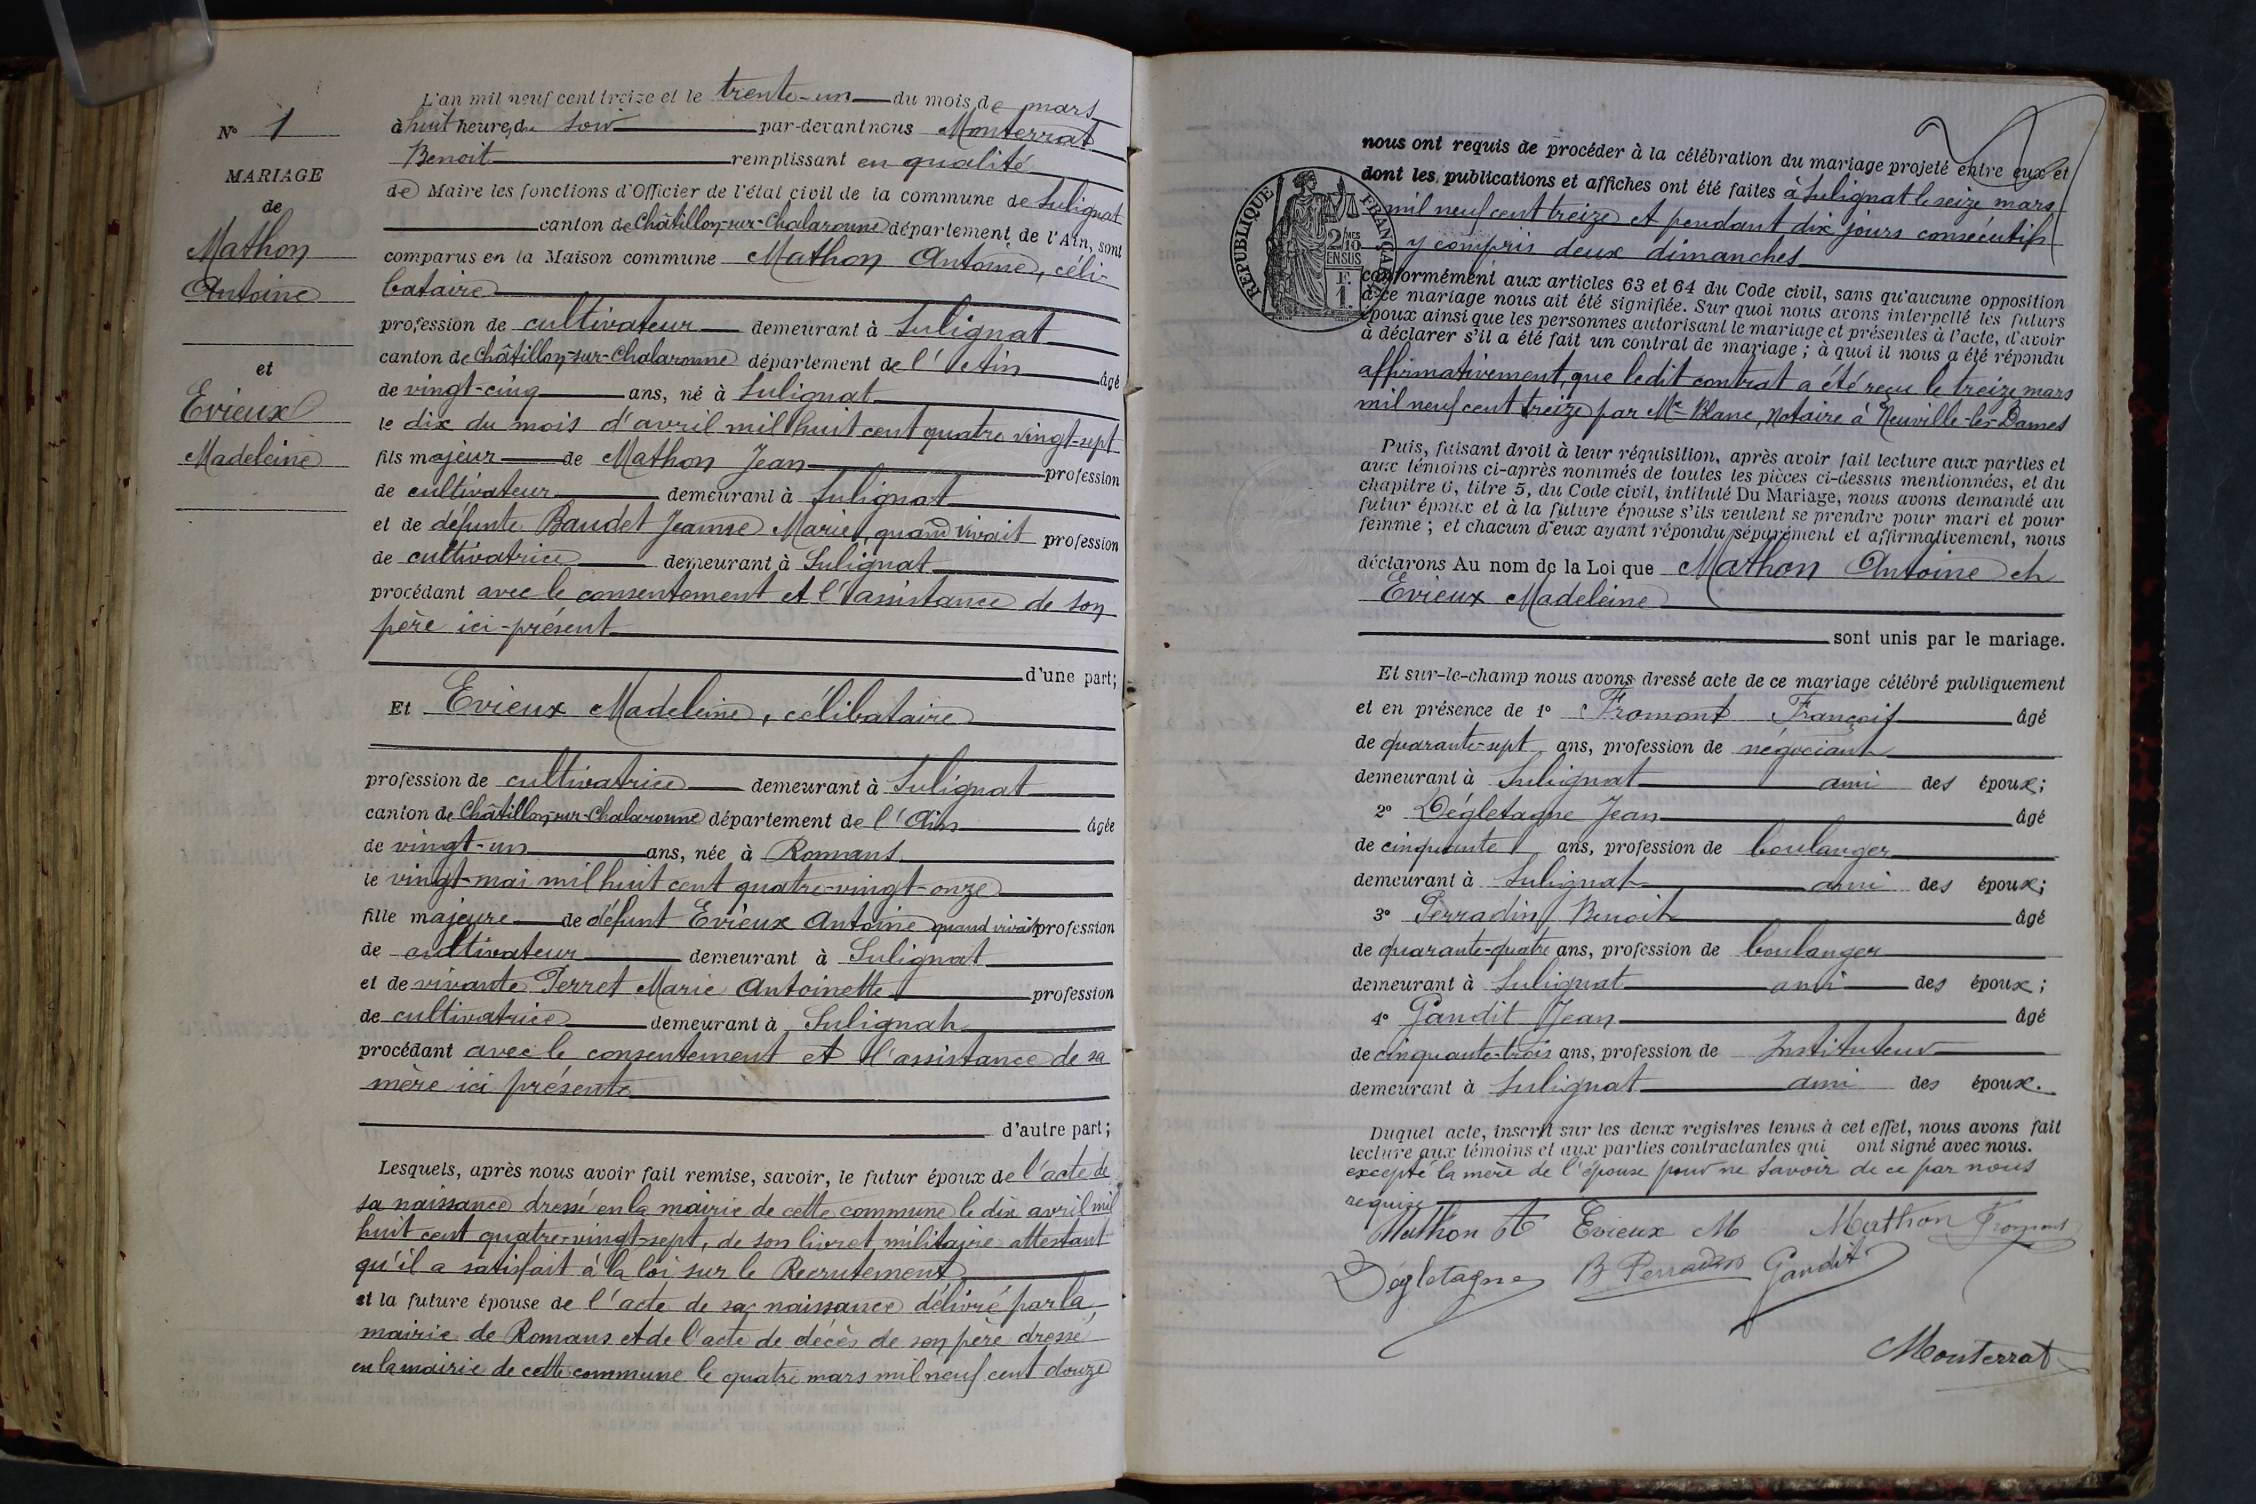 N° 1
MARIAGE
de
Mathon
Antoine
et
Evieux
Madeleine
L'an mil neuf cent treize et le trente-un du mois de mars
à huit heure, du soir par-devant nous Monterrat
Benoit remplissant en qualité
de Maire les fonctions d'Officier de l'état civil de la commune de Sulignat
canton de Châtillon-sur-Chalaronne département de l'Ain, sont
comparus en la Maison commune Mathon Antoine, céli-
bataire
profession de cultivateur demeurant à Sulignat
canton de Châtillon-sur-Chalaronne département de l'Ain âgé
de vingt-cinq ans, né à Sulignat
le dix du mois d'avril mil huit cent quatre vingt-sept
fils majeur de Mathon Jean profession
de cultivateur demeurant à Sulignat
et de défunte Baudet Jeanne Marie, quand vivait profession
de cultivatrice demeurant à Sulignat
procédant avec le consentement et l'assistance de son
père ici-présent
d'une part;
Et Evieux Madeleine, célibataire
profession de cultivatrice demeurant à Sulignat
canton de Châtillon-sur-Chalaronne département de l'Ain âgée
de vingt-un ans, née à Romans
le vingt-mai mil huit cent quatre-vingt-onze
fille majeure de défunt Evieux Antoine quand vivait profession
de cultivateur demeurant à Sulignat
et de vivante Perret Marie Antoinette profession
de cultivatrice demeurant à Sulignat
procédant avec le consentement et l'assistance de sa
mère ici présente
d'autre part;
Lesquels, après nous avoir fait remise, savoir, le futur époux de l'acte de
sa naissance dressé en la mairie de cette commune le dix avril mil
huit cent quatre-vingt-sept, de son livret militaire attestant
qu'il a satisfait à la loi sur le Recrutement
et la future épouse de l'acte de sa naissance délivré par la
mairie de Romans et de l'acte de décès de son père dressé
en la mairie de cette commune le quatre mars mil neuf cent douze
nous ont requis de procéder à la célébration du mariage projeté entre eux et
dont les publications et affiches ont été faites à Sulignat le seize mars
mil neuf cent treize et pendant dix jours consécutifs
y compris deux dimanches
RÉPUBLIQUE FRANÇAISE
2/10MES
EN SUS
F.
1.
conformément aux articles 63 et 64 du Code civil, sans qu'aucune opposition
à ce mariage nous ait été signifiée. Sur quoi nous avons interpellé les futurs
époux ainsi que les personnes autorisant le mariage et présentes à l'acte, d'avoir
à déclarer s'il a été fait un contrat de mariage; à quoi il nous a été répondu
affirmativement, que ledit contrat a été reçu le treize mars
mil neuf cent treize par Me Blanc, Notaire à Neuville-les-Dames
Puis, faisant droit à leur réquisition, après avoir fait lecture aux parties et
aux témoins ci-après nommés de toutes les pièces ci-dessus mentionnées, et du
chapitre 6, titre 5, du Code civil, intitulé Du Mariage, nous avons demandé au
futur époux et à la future épouse s'ils veulent se prendre pour mari et pour
femme; et chacun d'eux ayant répondu séparément et affirmativement, nous
déclarons Au nom de la Loi que Mathon Antoine et
Evieux Madeleine
sont unis par le mariage.
Et sur-le-champ nous avons dressé acte de ce mariage célébré publiquement
et en présence de 1° Fromont François âgé
de quarante-sept ans, profession de négociant
demeurant à Sulignat ami des époux;
2° Dégletagne Jean âgé
de cinquante ans, profession de boulanger
demeurant à Sulignat ami des époux;
3° Perradin Benoit âgé
de quarante-quatre ans, profession de boulanger
demeurant à Sulignat ami des époux;
4° Gandit Jean âgé
de cinquante-trois ans, profession de Instituteur
demeurant à Sulignat ami des époux.
Duquel acte, inscrit sur les deux registres tenus à cet effet, nous avons fait
lecture aux témoins et aux parties contractantes qui ont signé avec nous.
excepté la mère de l'épouse pour ne savoir de ce par nous
requise
Mathon A Evieux M Mathon Fromont
Dégletagne B Perradin Gandit
Monterrat